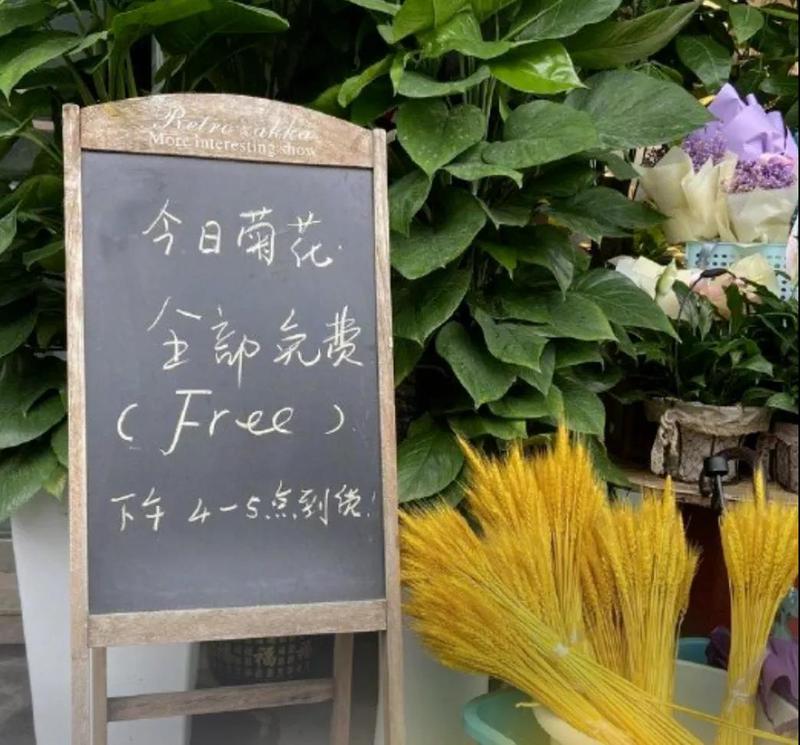 More interesting show
今日菊花
全部免费
(Free)
下午4-5点到货!
福